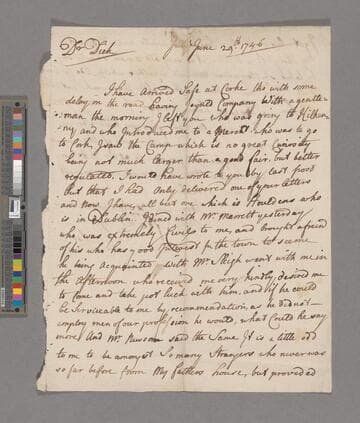 Dr Dick June 29th 1746
I have arrived Safe at Corke tho with some
delay on the road having Joyned Company with a gentle-
man the morning I left you who was going to Kilken
ny and who Introduced me to a who was to go
to Cork, I saw the Camp which is no great Curiosity
being not much larger than a good fair, but better
regulated. I would have wrote to you by last post
but that I had only delivered one of your letters
and now I have all but one which is Houldens who
is in Dublin. I dined with Mr. Harrett yesterday
who was extremely Civile to me, and brought a friend
of his who has good Interest in the town to
be being acquainted with Mr. Sleigh went with me in
the afternoon who received me very kindly, desired me
to come and take pot luck with him, and if he could
be Serviceable to me by recommendation, as he did not
employ men of our profession he would, what Could he say
more And Mr. Newsom said the Same It is a little odd
to me to be amongst So many Strangers who never was
so far before from My fathers house, but provided